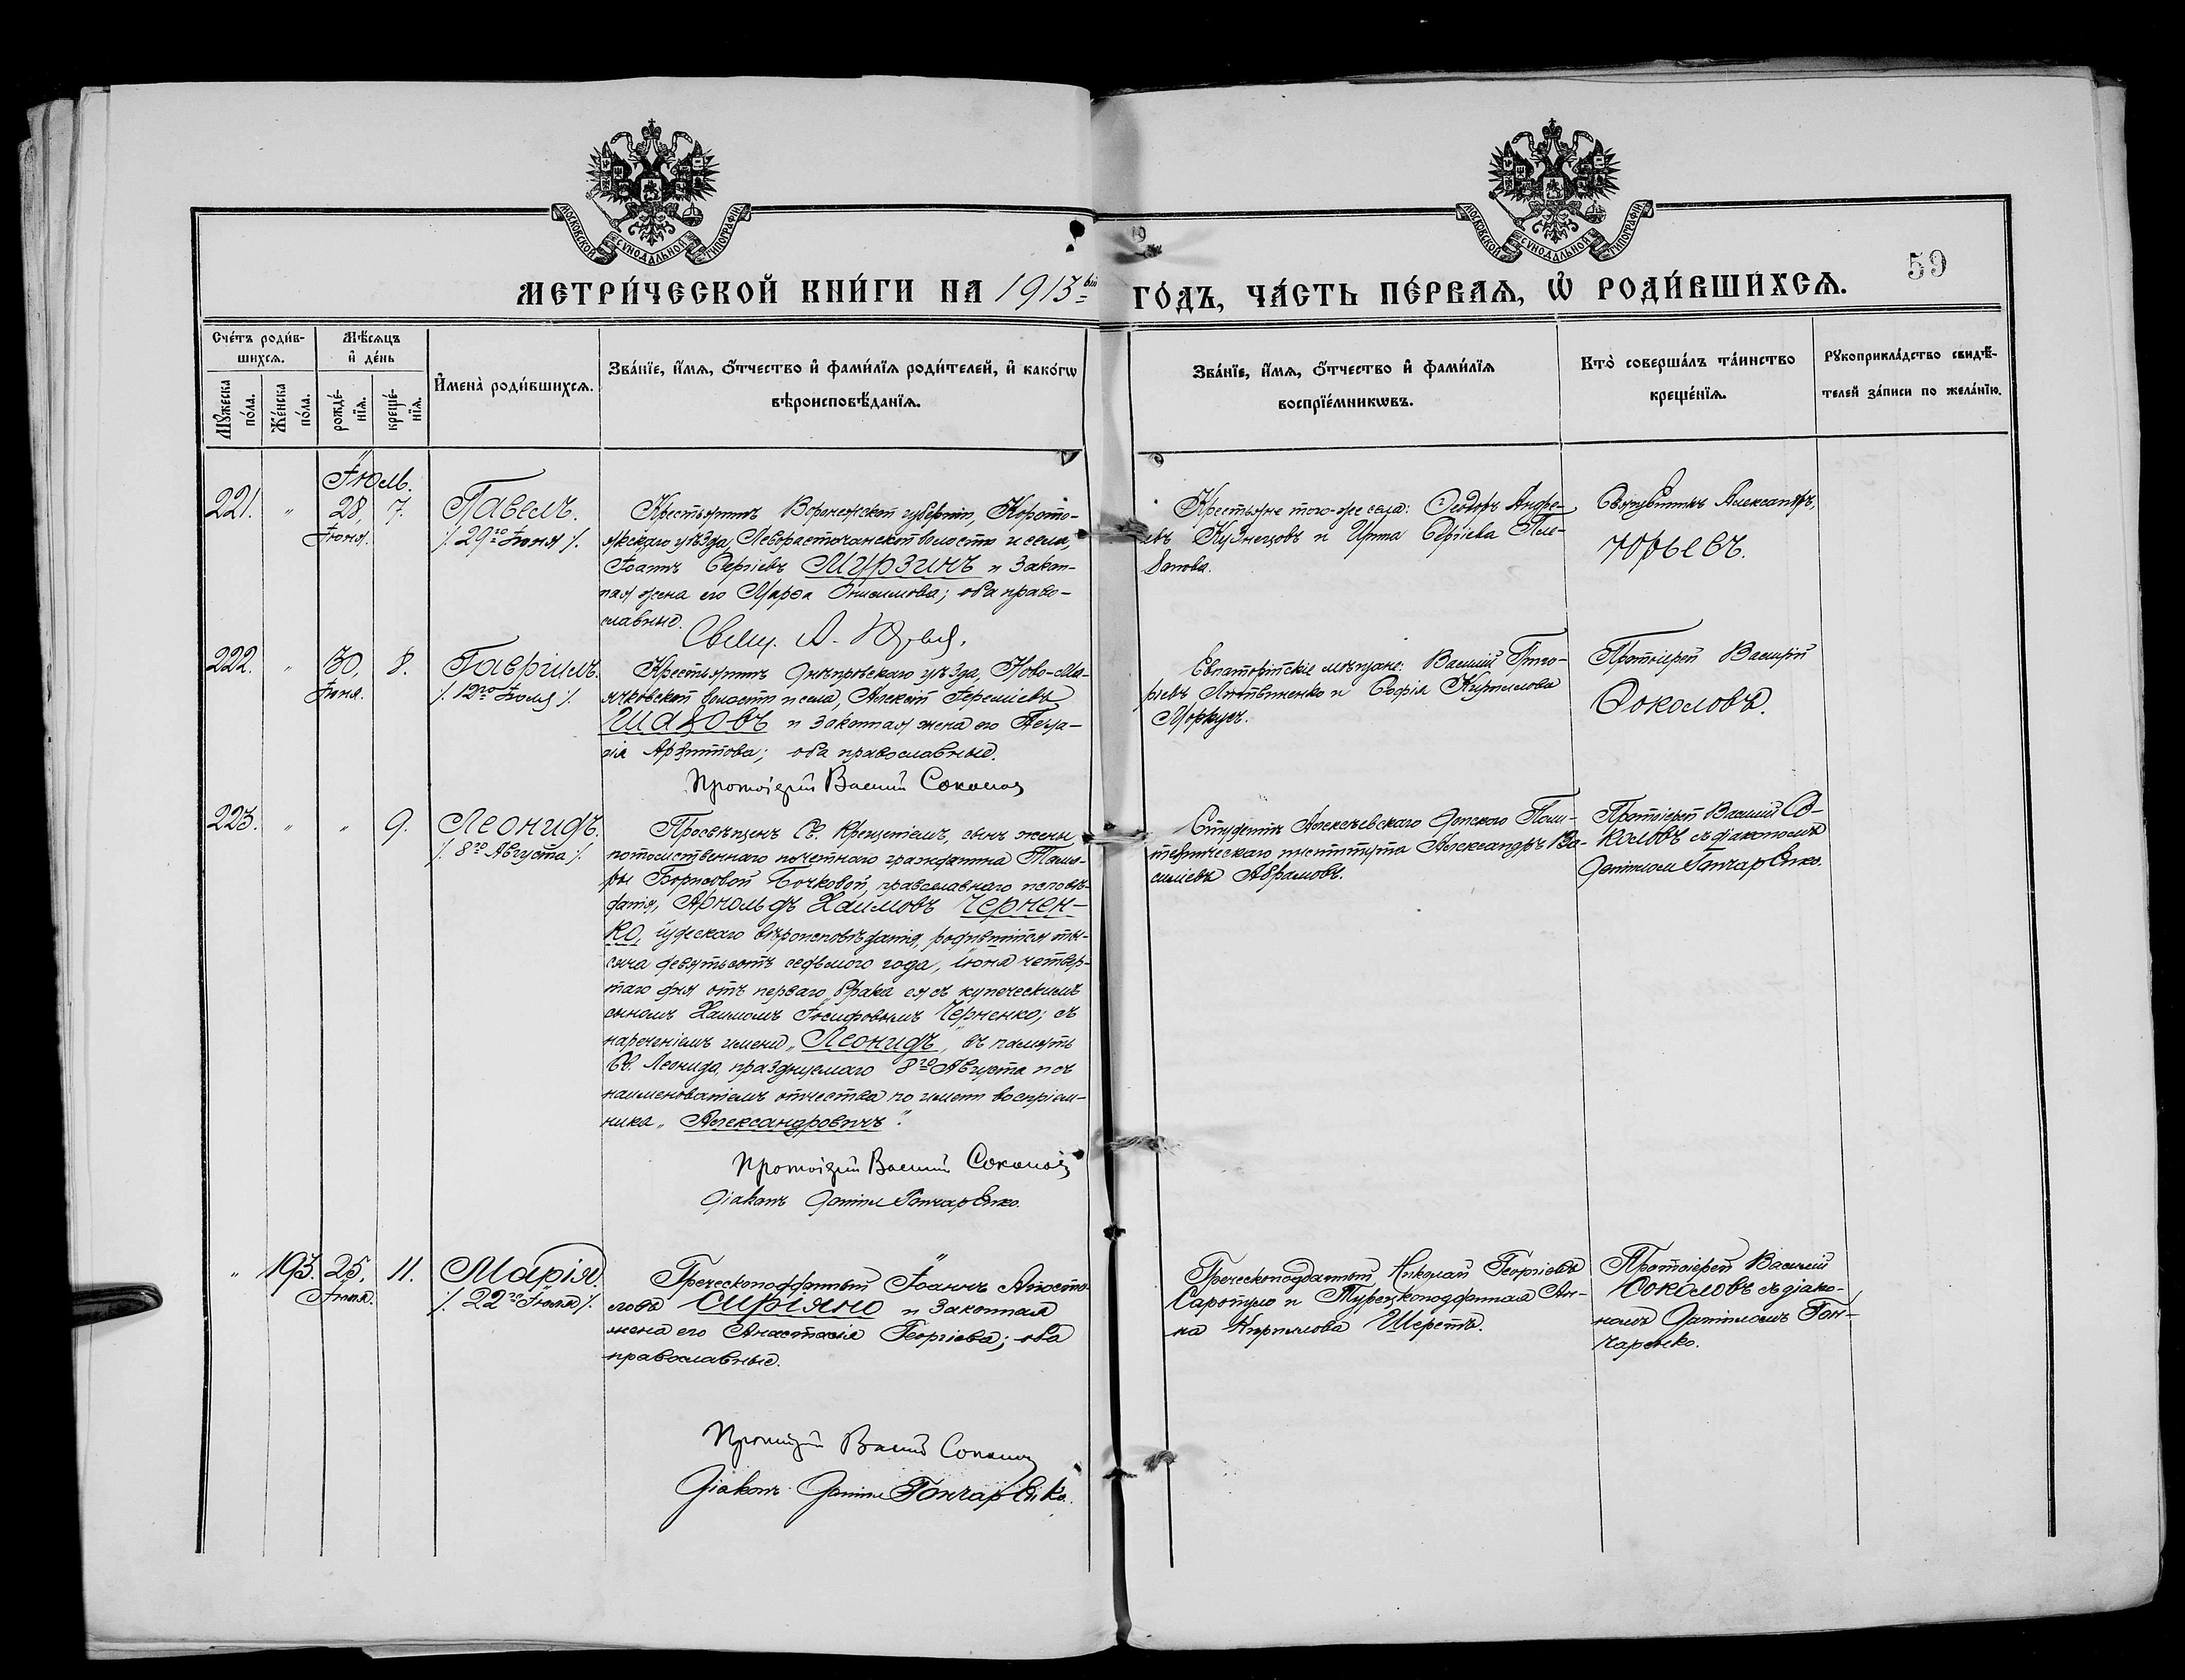 МОСКОВСКОЙ СѴНОДАЛЬНОЙ ТИПОГРАФІИ
МОСКОВСКОЙ СѴНОДАЛЬНОЙ ТИПОГРАФІИ
59
МЕТРИ́ЧЕСКОЙ КНИ́ГИ НА 1913-ый ГО́ДЪ, ЧА́СТЬ ПЕ́РВАѦ, Ѡ РОДИ́ВШИХСѦ.
Сче́тъ роди́в-
шихсѧ.
Мѣ́сѧцъ
и҆ де́нь
Мꙋ́жеска по́ла.
Же́нска по́ла.
рожде́-
нїѧ.
креще́-
нїѧ.
И҆мена̀ роди́вшихсѧ.
Зва́нїе, и҆́мѧ, ѻ҆́тчество и҆ фами́лїѧ роди́телей, и҆ како́гѡ
вѣроисповѣ́данїѧ.
Зва́нїе, и҆́мѧ, ѻ҆́тчество и҆ фами́лїѧ
воспрїе́мникѡвъ.
Кто̀ соверша́лъ та́инство
креще́нїѧ.
Рꙋкоприкла́дство свидѣ́-
телей за́писи по жела́нїю.
Іюль.
221. " 28, 7. Павелъ.
Іюня. ⁒ 29го Іюня ⁒
Крестьянинъ Воронежской губерніи, Корото-
якскаго уѣзда, волости и села,
Іоаннъ Сергіевъ Мурзинъ и закон-
ная жена его Марѳа Онисимова; оба право-
славные.
Свящ. А. Юрьев.
Крестьяне того-же села: Ѳеодоръ Андре-
евъ Кузнецовъ и Ирина Сергіева
Священникъ Александръ
Юрьевъ.
222. " 30, 8. Гавріилъ.
Іюня. ⁒ 13го Іюля ⁒
Крестьянинъ Днѣпровскаго уѣзда, Ново-Ма-
ячковской волости и села, Алексѣй Іереміевъ
и законная жена его Пела-
гія оба православные.
Протоіерей Василій Соколов
Евпаторійскіе мѣщане: Василій Григо-
ріевъ Литвиненко и Софія Кириллова
Протоіерей Василій
Соколовъ.
223. " " 9. Леонидъ.
⁒ 8го Августа ⁒
Просвѣщенъ Св. Крещеніемъ, сынъ жены
потомственнаго почетнаго гражданина Тама-
ры Борисовой Бочковой, православнаго исповѣ-
данія, Арнольдъ Хаимовъ Чернен-
ко, іудескаго вѣроисповѣданія, родившійся ты-
сяча девятьсотъ седьмого года, іюня четвер-
таго дня отъ перваго брака ея съ купеческимъ
сыномъ Хаимомъ Іосифовымъ Черненко; съ
нареченіемъ имени „Леонидъ", въ память
Св. Леонида, празднуемаго 8го Августа и съ
наименованіемъ отчества по имени воспріем-
ника „Александровичъ".
Протоіерей Василій Соколов
Діаконъ Даніилъ Гончаренко.
Студентъ Алексѣевскаго Донского Поли-
техническаго института Александръ Ва-
силіевъ Абрамовъ.
Протоіерей Василій Со-
коловъ съ діакономъ
Даніиломъ Гончаренко.
" 193. 25, 11. Марія.
Іюня. ⁒ 22го Іюля ⁒
Греческоподданный Іоаннъ Апосто-
ловъ Сиріяно и законная
жена его Анастасія Георгіева; оба
православные.
Протоіерей Василій Соколов
Діаконъ Даніилъ Гончаренко.
Греческоподданный Николай Георгіевъ
и Турецкоподданная Ан-
на Кириллова Шеретъ.
Протоіерей Василій
Соколовъ съ діако-
номъ Даніиломъ Гон-
чаренко.